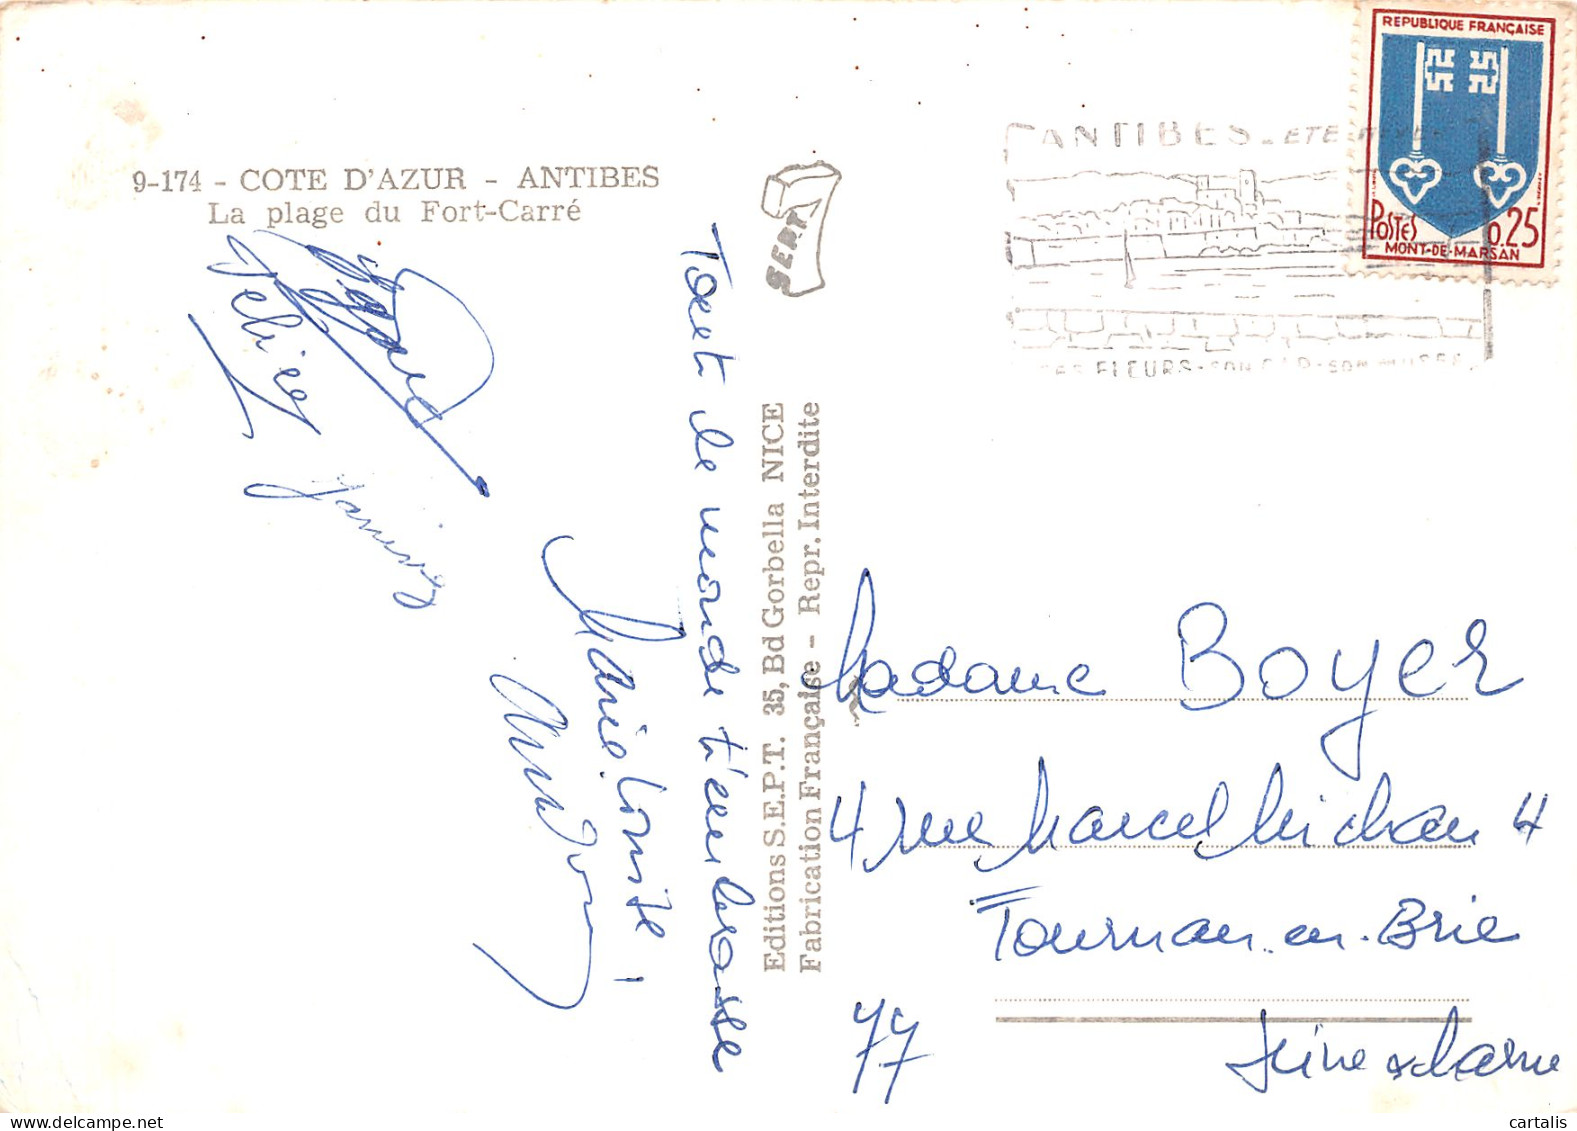 9-174 - COTE D'AZUR - ANTIBES
La plage du Fort-Carré
Tout le monde t'embrasse
Marie-Louise
Janine
SEPT
Editions S.E.P.T. 35, Bd Gorbella NICE
Fabrication Française - Repr. Interdite
ANTIBES - ETE
FLEURS - SON CAP - SON MUSEE
REPUBLIQUE FRANÇAISE
POSTES 0.25
MONT-DE-MARSAN
Madame Boyer
4 rue Marcel Michau 4
Tournan-en-Brie
77 Seine & Marne
cartalis